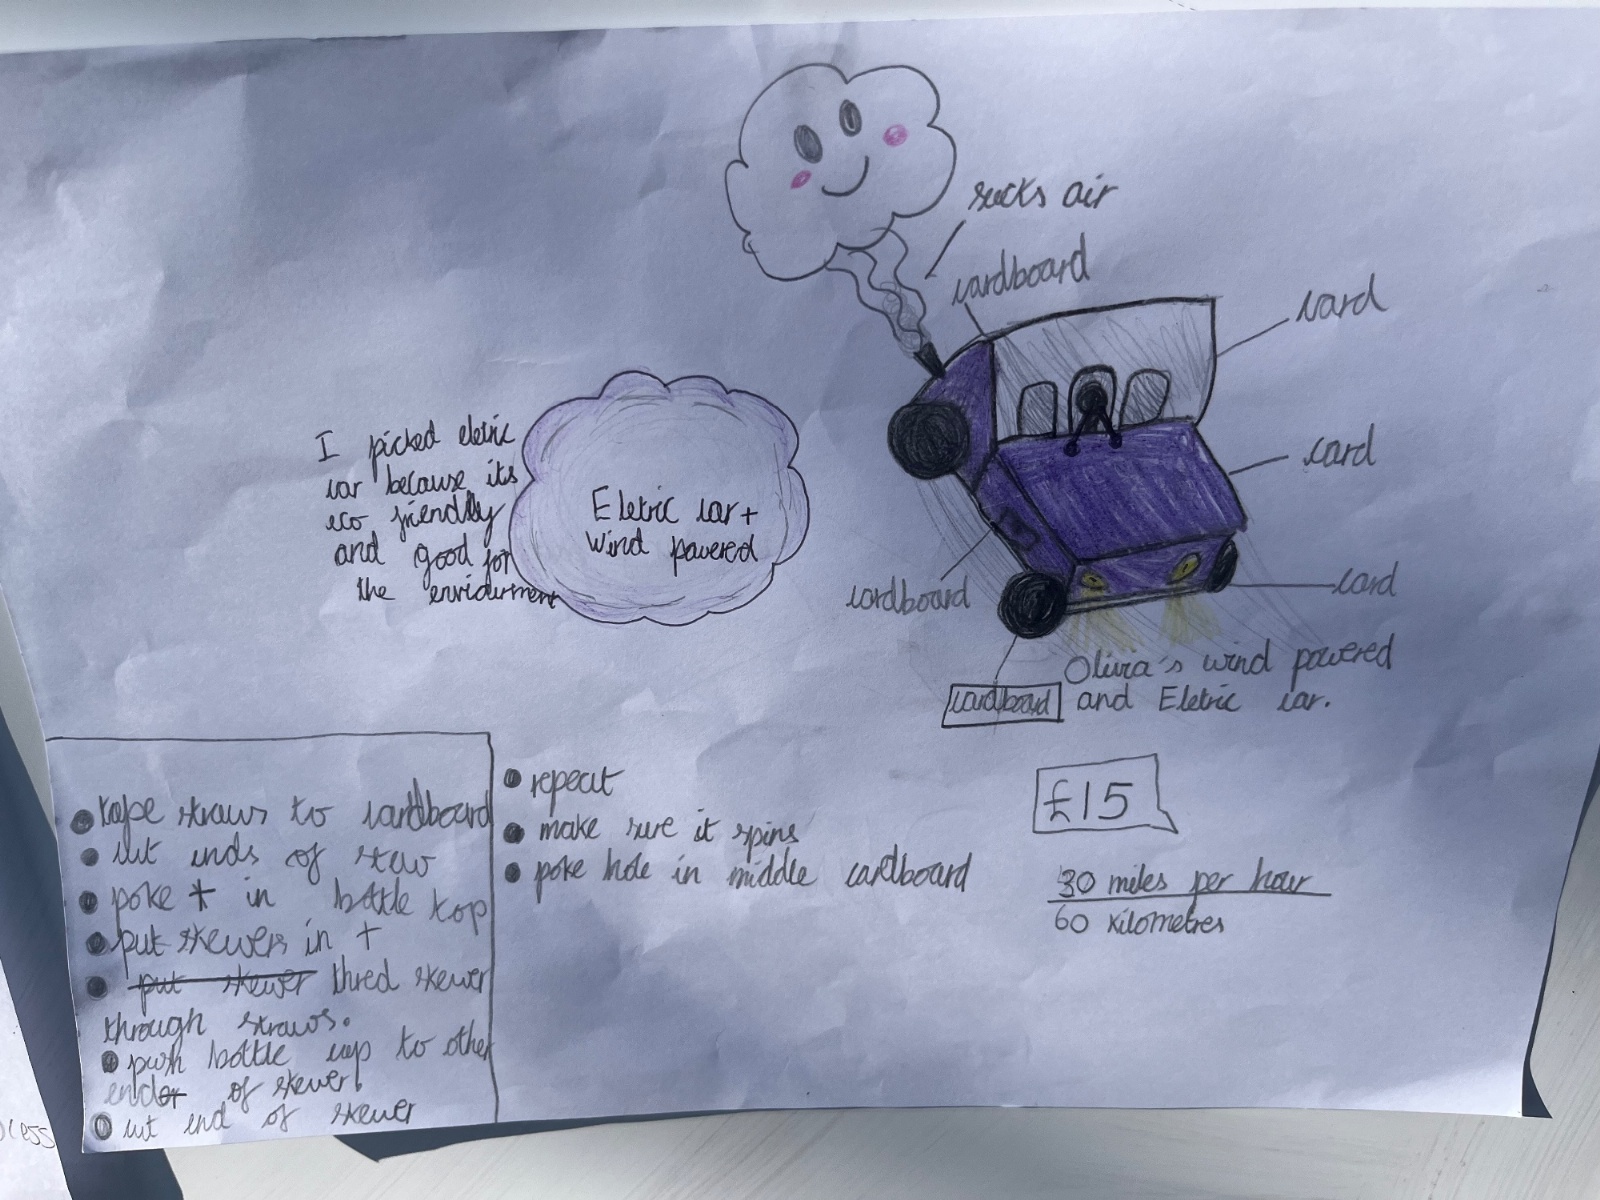 sucks air
cardboard
card
card
I picked eletric
car because its
eco friendlly
and good for
the enviourment
Eletric car +
Wind powered
cardboard
card
cardboard
Olivia's wind powered
and Eletric car.
• tape straws to cardboard
• cut ends of straw
• poke + in bottle top
• put skewers in +
• put skewer thred skewer
through straws.
• push bottle cap to other
end of skewer.
• cut end of skewer
• repeat
• make sure it spins
• poke hole in middle cardboard
£15
30 miles per hour
60 kilometres